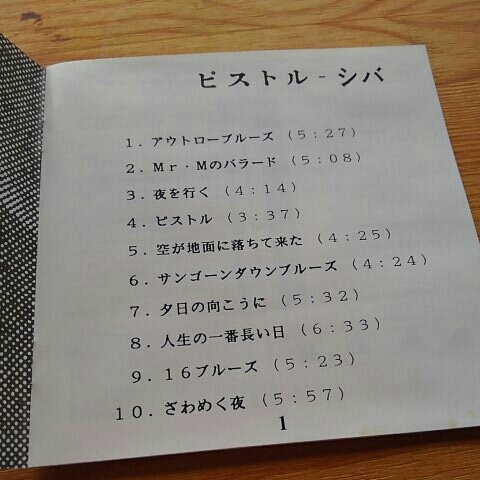 ピストル - シバ
1. アウトローブルーズ (5:27)
2. Mr・Mのバラード (5:08)
3. 夜を行く (4:14)
4. ピストル (3:37)
5. 空が地面に落ちて来た (4:25)
6. サンゴーンダウンブルーズ (4:24)
7. 夕日の向こうに (5:32)
8. 人生の一番長い日 (6:33)
9. 16ブルーズ (5:23)
10. ざわめく夜 (5:57)
1